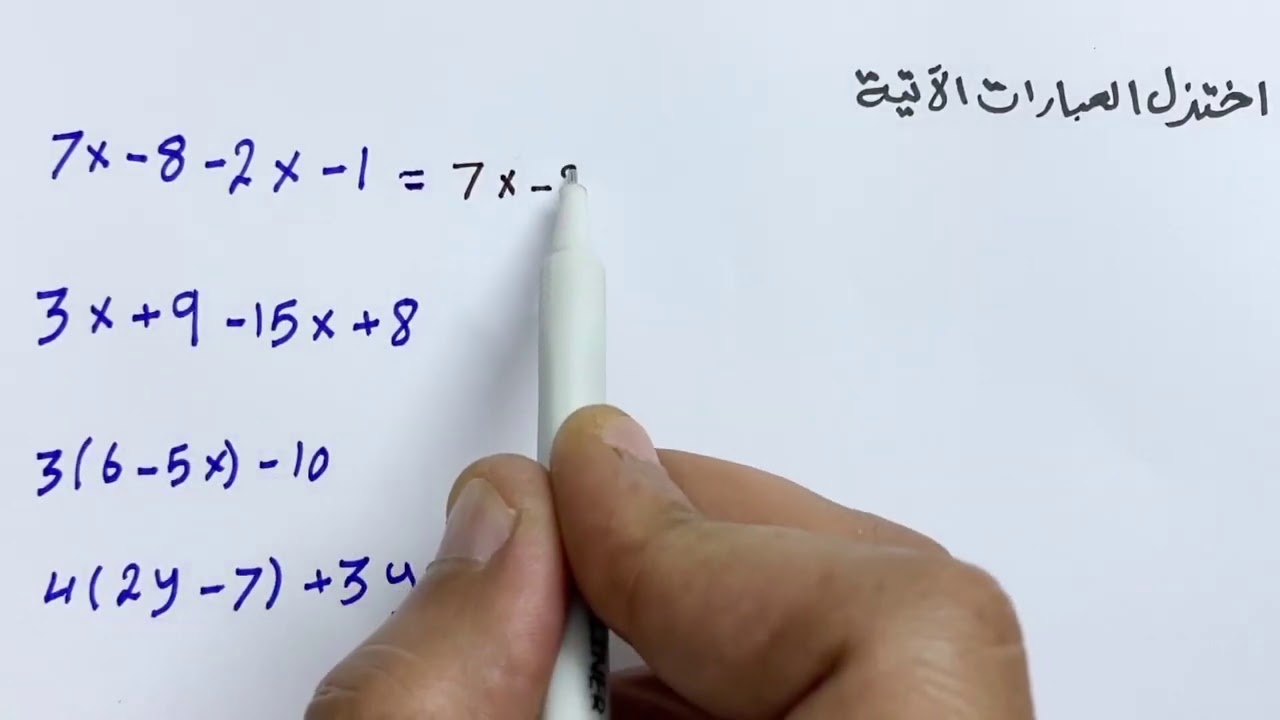 اختزل العبارات الآتية
7x - 8 - 2x - 1 = 7x -
3x + 9 - 15x + 8
3(6 - 5x) - 10
4(2y - 7) + 3y